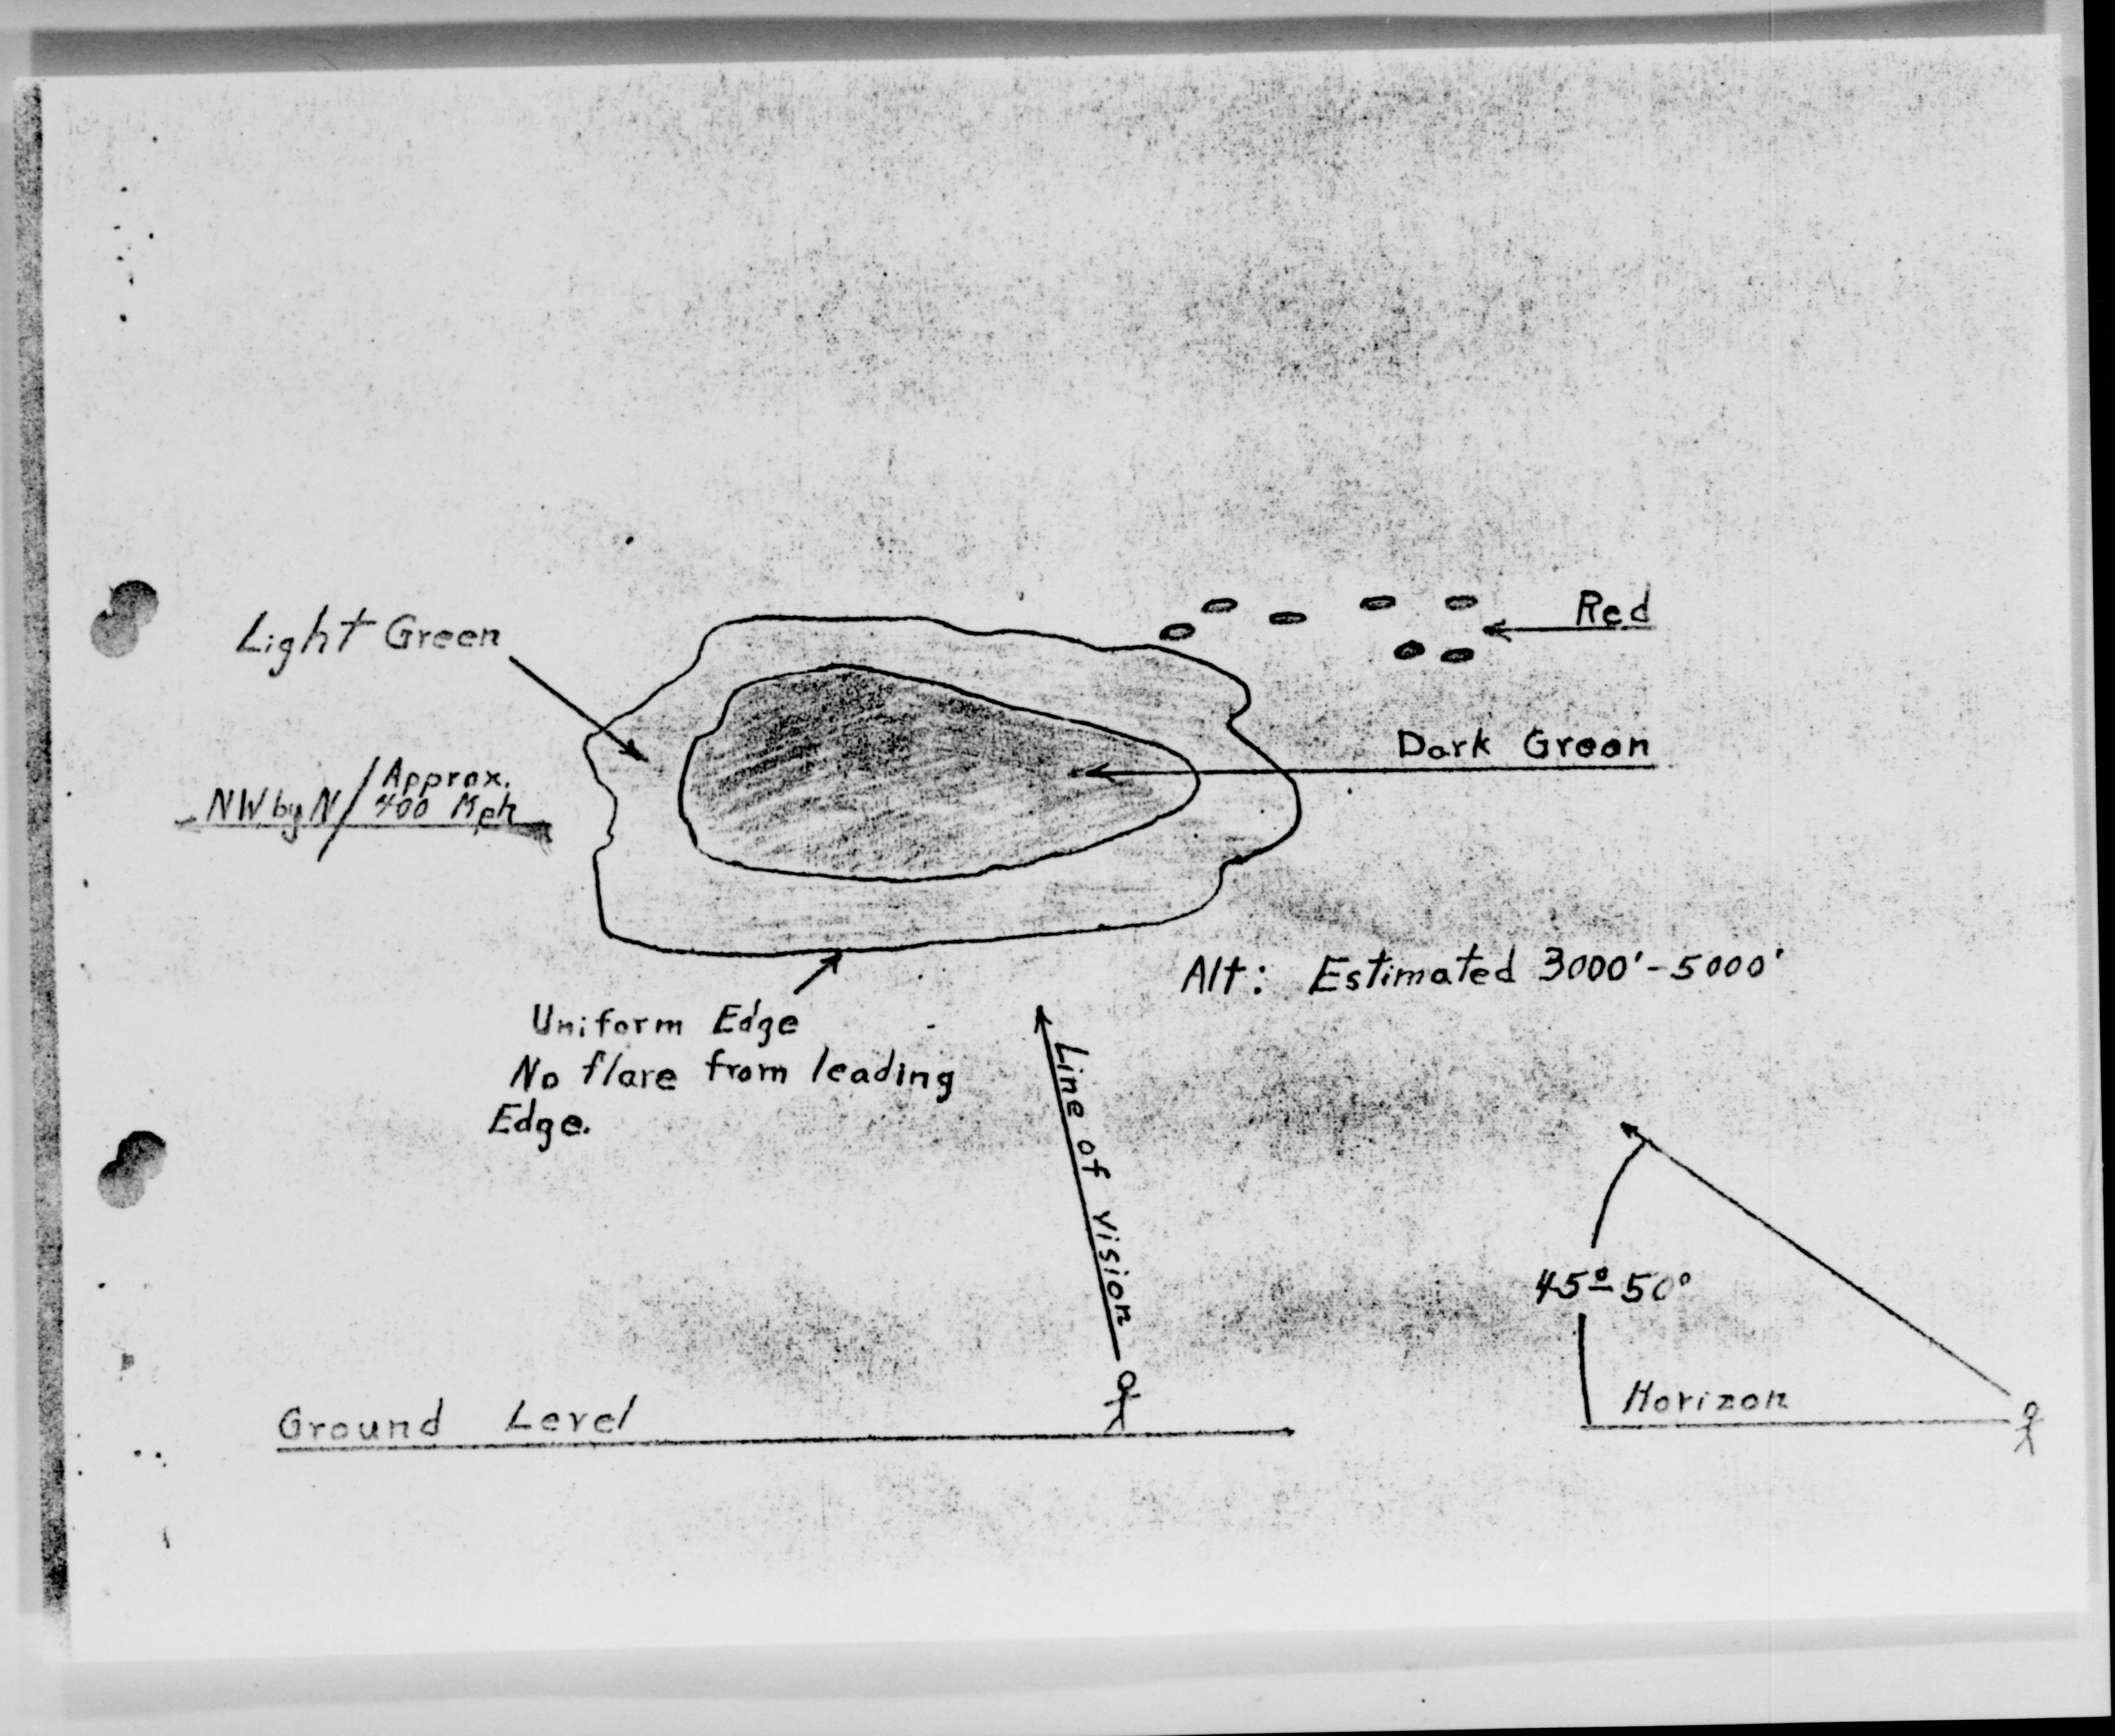 Red
Light Green
Dark Green
NW by N / Approx. 400 Mph
Alt: Estimated 3000'-5000'
Uniform Edge
No flare from leading
Edge.
Line of vision
45°-50°
Horizon
Ground Level